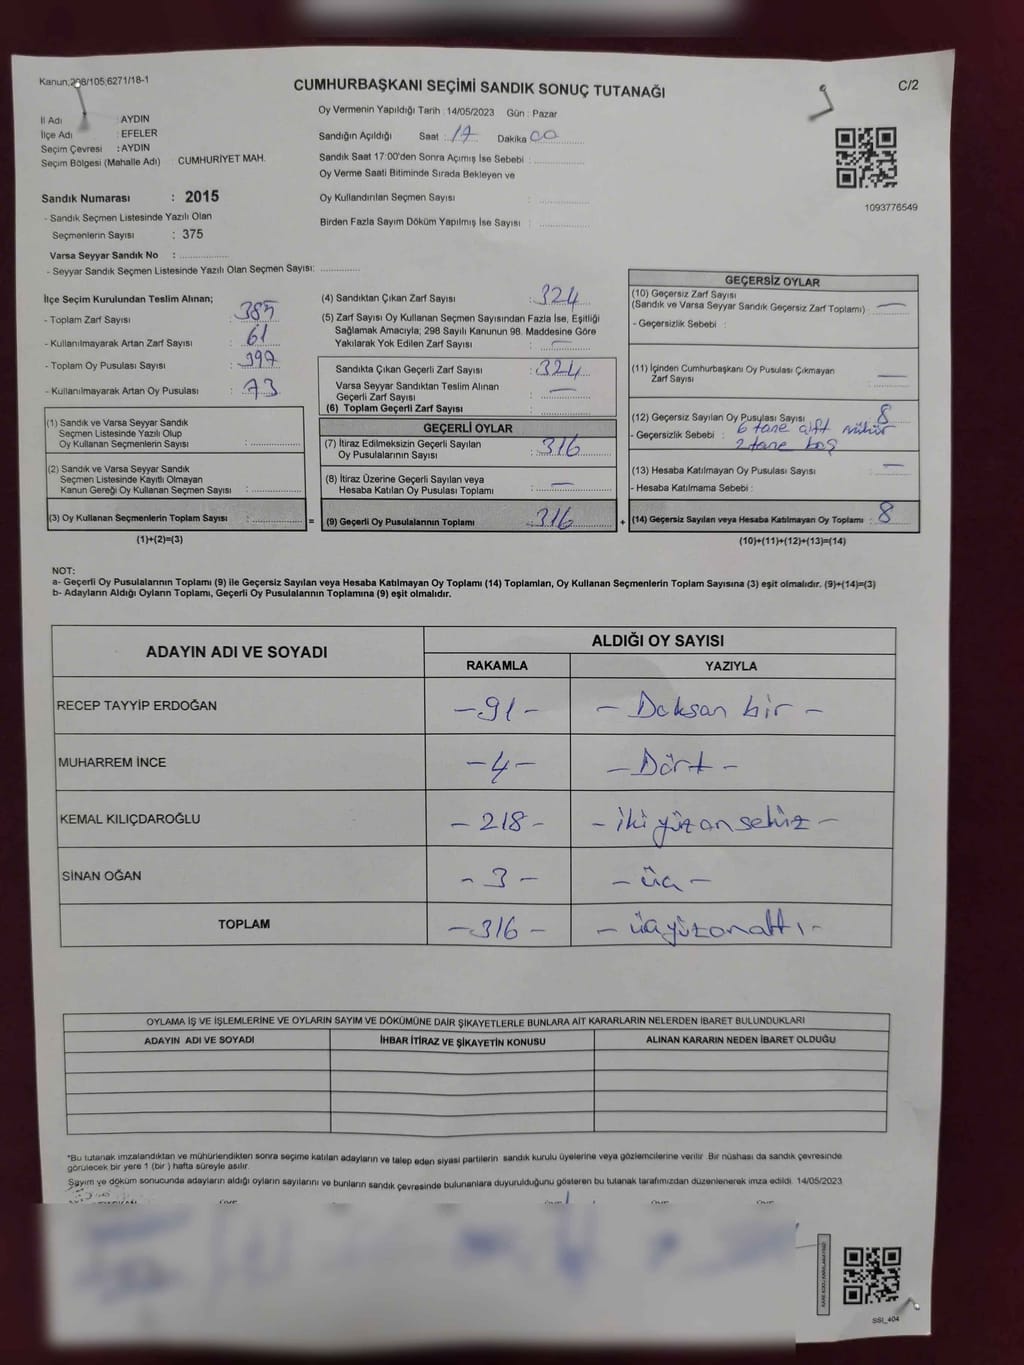 Kanun;298/105,6271/18-1
CUMHURBAŞKANI SEÇİMİ SANDIK SONUÇ TUTANAĞI
C/2
İl Adı : AYDIN
İlçe Adı : EFELER
Seçim Çevresi : AYDIN
Seçim Bölgesi (Mahalle Adı) : CUMHURİYET MAH.
Sandık Numarası : 2015
- Sandık Seçmen Listesinde Yazılı Olan
Seçmenlerin Sayısı : 375
Varsa Seyyar Sandık No :
- Seyyar Sandık Seçmen Listesinde Yazılı Olan Seçmen Sayısı:
Oy Vermenin Yapıldığı Tarih : 14/05/2023 Gün : Pazar
Sandığın Açıldığı Saat : 17 Dakika 00
Sandık Saat 17:00'den Sonra Açımış İse Sebebi :
Oy Verme Saati Bitiminde Sırada Bekleyen ve
Oy Kullandırılan Seçmen Sayısı :
Birden Fazla Sayım Döküm Yapılmış İse Sayısı :
1093776549
İlçe Seçim Kurulundan Teslim Alınan;
- Toplam Zarf Sayısı : 385
- Kullanılmayarak Artan Zarf Sayısı : 61
- Toplam Oy Pusulası Sayısı : 397
- Kullanılmayarak Artan Oy Pusulası : 73
(1) Sandık ve Varsa Seyyar Sandık
Seçmen Listesinde Yazılı Olup
Oy Kullanan Seçmenlerin Sayısı :
(2) Sandık ve Varsa Seyyar Sandık
Seçmen Listesinde Kayıtlı Olmayan
Kanun Gereği Oy Kullanan Seçmen Sayısı :
(3) Oy Kullanan Seçmenlerin Toplam Sayısı :
(1)+(2)=(3)
=
(4) Sandıktan Çıkan Zarf Sayısı : 324
(5) Zarf Sayısı Oy Kullanan Seçmen Sayısından Fazla İse, Eşitliği
Sağlamak Amacıyla; 298 Sayılı Kanunun 98. Maddesine Göre
Yakılarak Yok Edilen Zarf Sayısı : —
Sandıkta Çıkan Geçerli Zarf Sayısı : 324
Varsa Seyyar Sandıktan Teslim Alınan
Geçerli Zarf Sayısı : —
(6) Toplam Geçerli Zarf Sayısı :
GEÇERLİ OYLAR
(7) İtiraz Edilmeksizin Geçerli Sayılan
Oy Pusulalarının Sayısı : 316
(8) İtiraz Üzerine Geçerli Sayılan veya
Hesaba Katılan Oy Pusulası Toplamı : —
(9) Geçerli Oy Pusulalarının Toplamı : 316
+
GEÇERSİZ OYLAR
(10) Geçersiz Zarf Sayısı
(Sandık ve Varsa Seyyar Sandık Geçersiz Zarf Toplamı) : —
- Geçersizlik Sebebi :
(11) İçinden Cumhurbaşkanı Oy Pusulası Çıkmayan
Zarf Sayısı : —
(12) Geçersiz Sayılan Oy Pusulası Sayısı : 8
- Geçersizlik Sebebi : 6 tane çift mühür
2 tane boş
(13) Hesaba Katılmayan Oy Pusulası Sayısı : —
- Hesaba Katılmama Sebebi :
(14) Geçersiz Sayılan veya Hesaba Katılmayan Oy Toplamı : 8
(10)+(11)+(12)+(13)=(14)
NOT:
a- Geçerli Oy Pusulalarının Toplamı (9) ile Geçersiz Sayılan veya Hesaba Katılmayan Oy Toplamı (14) Toplamları, Oy Kullanan Seçmenlerin Toplam Sayısına (3) eşit olmalıdır. (9)+(14)=(3)
b- Adayların Aldığı Oyların Toplamı, Geçerli Oy Pusulalarının Toplamına (9) eşit olmalıdır.
ADAYIN ADI VE SOYADI
ALDIĞI OY SAYISI
RAKAMLA YAZIYLA
RECEP TAYYİP ERDOĞAN – 91 – – Doksan bir –
MUHARREM İNCE – 4 – – Dört –
KEMAL KILIÇDAROĞLU – 218 – – iki yüzon sekiz –
SİNAN OĞAN – 3 – – üç –
TOPLAM – 316 – – üçyüzonaltı –
OYLAMA İŞ VE İŞLEMLERİNE VE OYLARIN SAYIM VE DÖKÜMÜNE DAİR ŞİKAYETLERLE BUNLARA AİT KARARLARIN NELERDEN İBARET BULUNDUKLARI
ADAYIN ADI VE SOYADI İHBAR İTİRAZ VE ŞİKAYETİN KONUSU ALINAN KARARIN NEDEN İBARET OLDUĞU
*Bu tutanak imzalandıktan ve mühürlendikten sonra seçime katılan adayların ve talep eden siyasi partilerin sandık kurulu üyelerine veya gözlemcilerine verilir. Bir nüshası da sandık çevresinde
görülecek bir yere 1 (bir) hafta süreyle asılır.
Sayım ve döküm sonucunda adayların aldığı oyların sayılarını ve bunların sandık çevresinde bulunanlara duyurulduğunu gösteren bu tutanak tarafımızdan düzenlenerek imza edildi. 14/05/2023
SSI_404